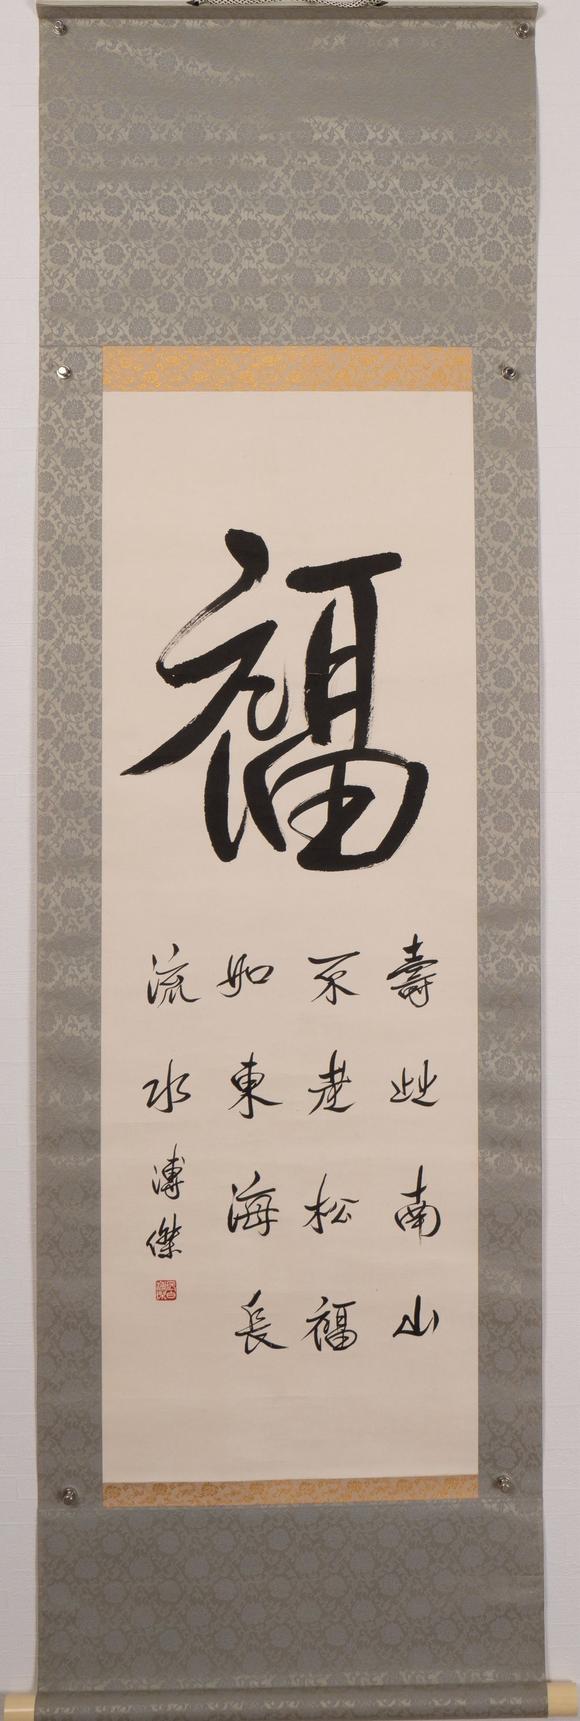 福
壽此南山
不老松福
如東海長
流水
溥傑